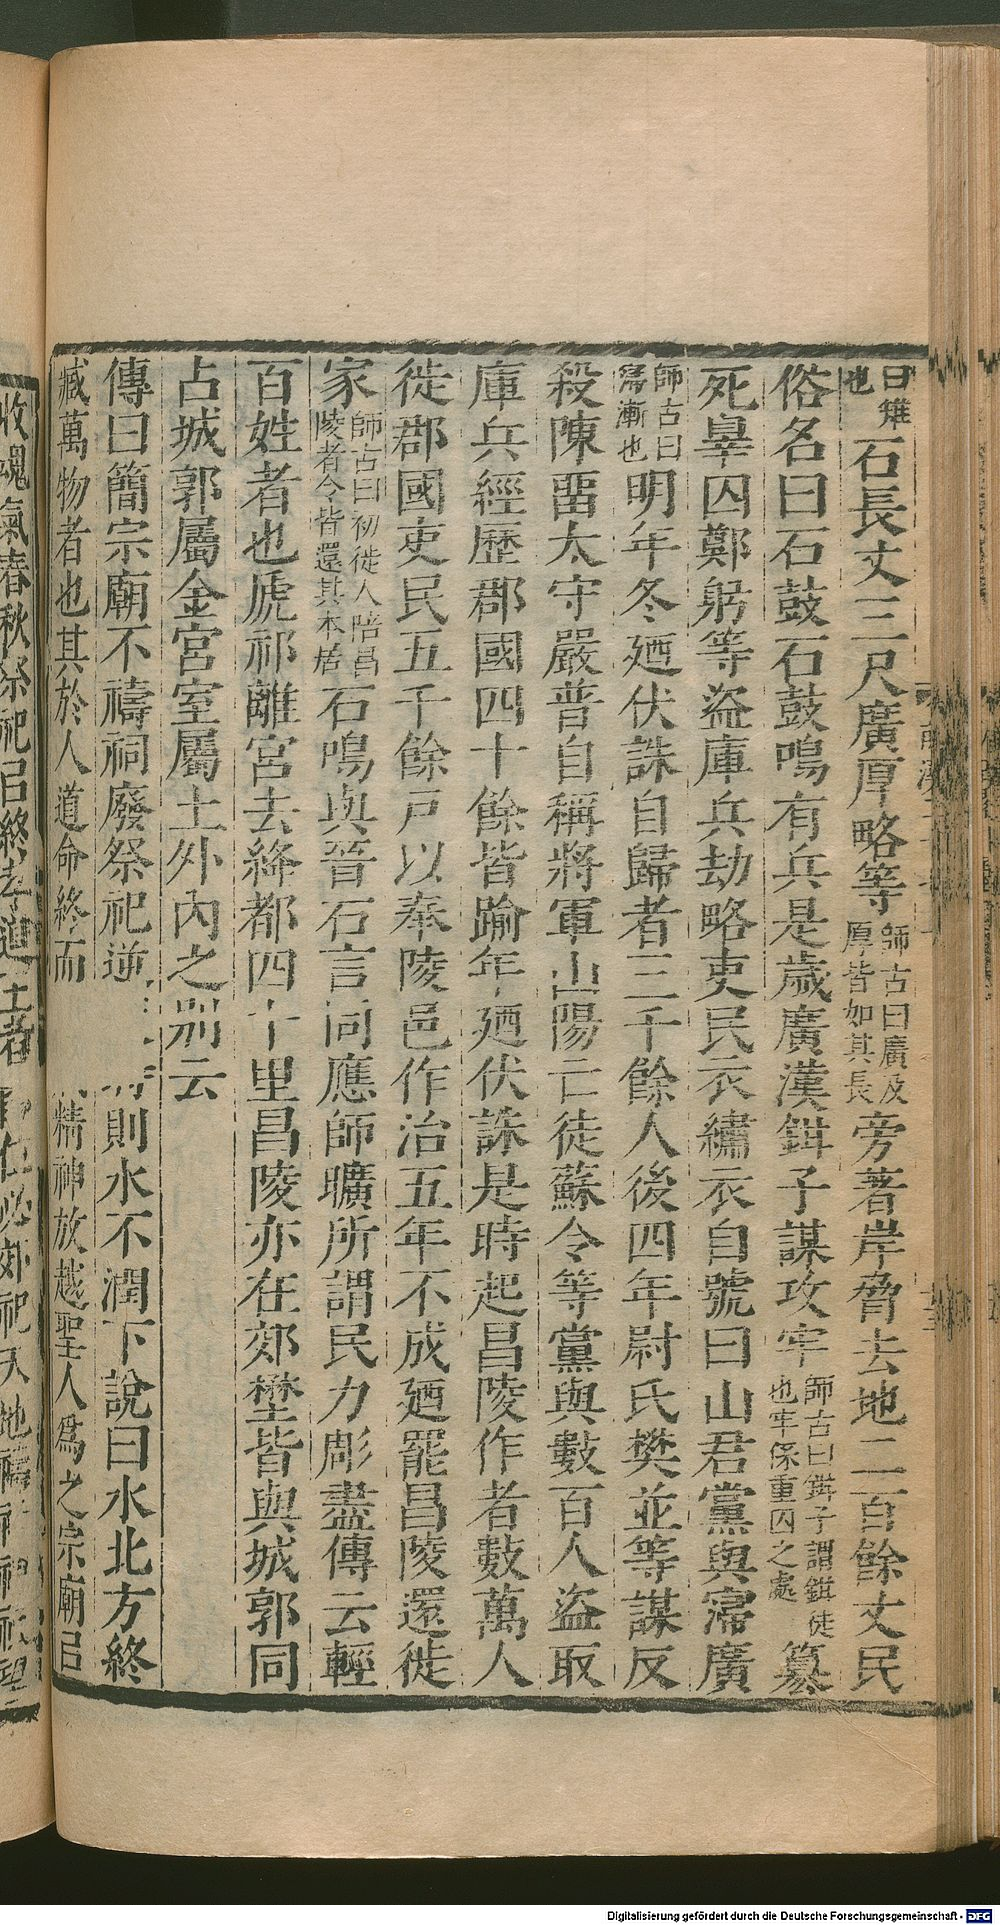 曰雉也石長丈三尺廣厚略等師古曰廣及厚皆如其長旁著岸脅去地二百餘丈民
俗名曰石鼓石鼓鳴有兵是歲廣漢鉗子謀攻牢師古曰鉗子謂鉗徒也牢係重囚之處篡
死辠囚鄭躬等盜庫兵劫略吏民衣繡衣自號曰山君黨與寖廣
師古曰寖漸也明年冬廼伏誅自歸者三千餘人後四年尉氏樊並等謀反
殺陳畱太守嚴普自稱將軍山陽亡徒蘇令等黨與數百人盜取
庫兵經歷郡國四十餘皆踰年廼伏誅是時起昌陵作者數萬人
徙郡國吏民五千餘戸以奉陵邑作治五年不成廼罷昌陵還徙
家師古曰初徙人陪昌陵者令皆還其本居石鳴與晉石言同應師曠所謂民力彫盡傳云輕
百姓者也虒祁離宮去絳都四十里昌陵亦在郊壄皆與城郭同
占城郭屬金宮室屬土外內之別云
傳曰簡宗廟不禱祠廢祭祀逆 則水不潤下說曰水北方終
臧萬物者也其於人道命終而 精神放越聖人爲之宗廟㠯
收魂氣春秋祭祀㠯終孝道王者 位必郊祀天地禱
Digitalisierung gefördert durch die Deutsche Forschungsgemeinschaft - DFG